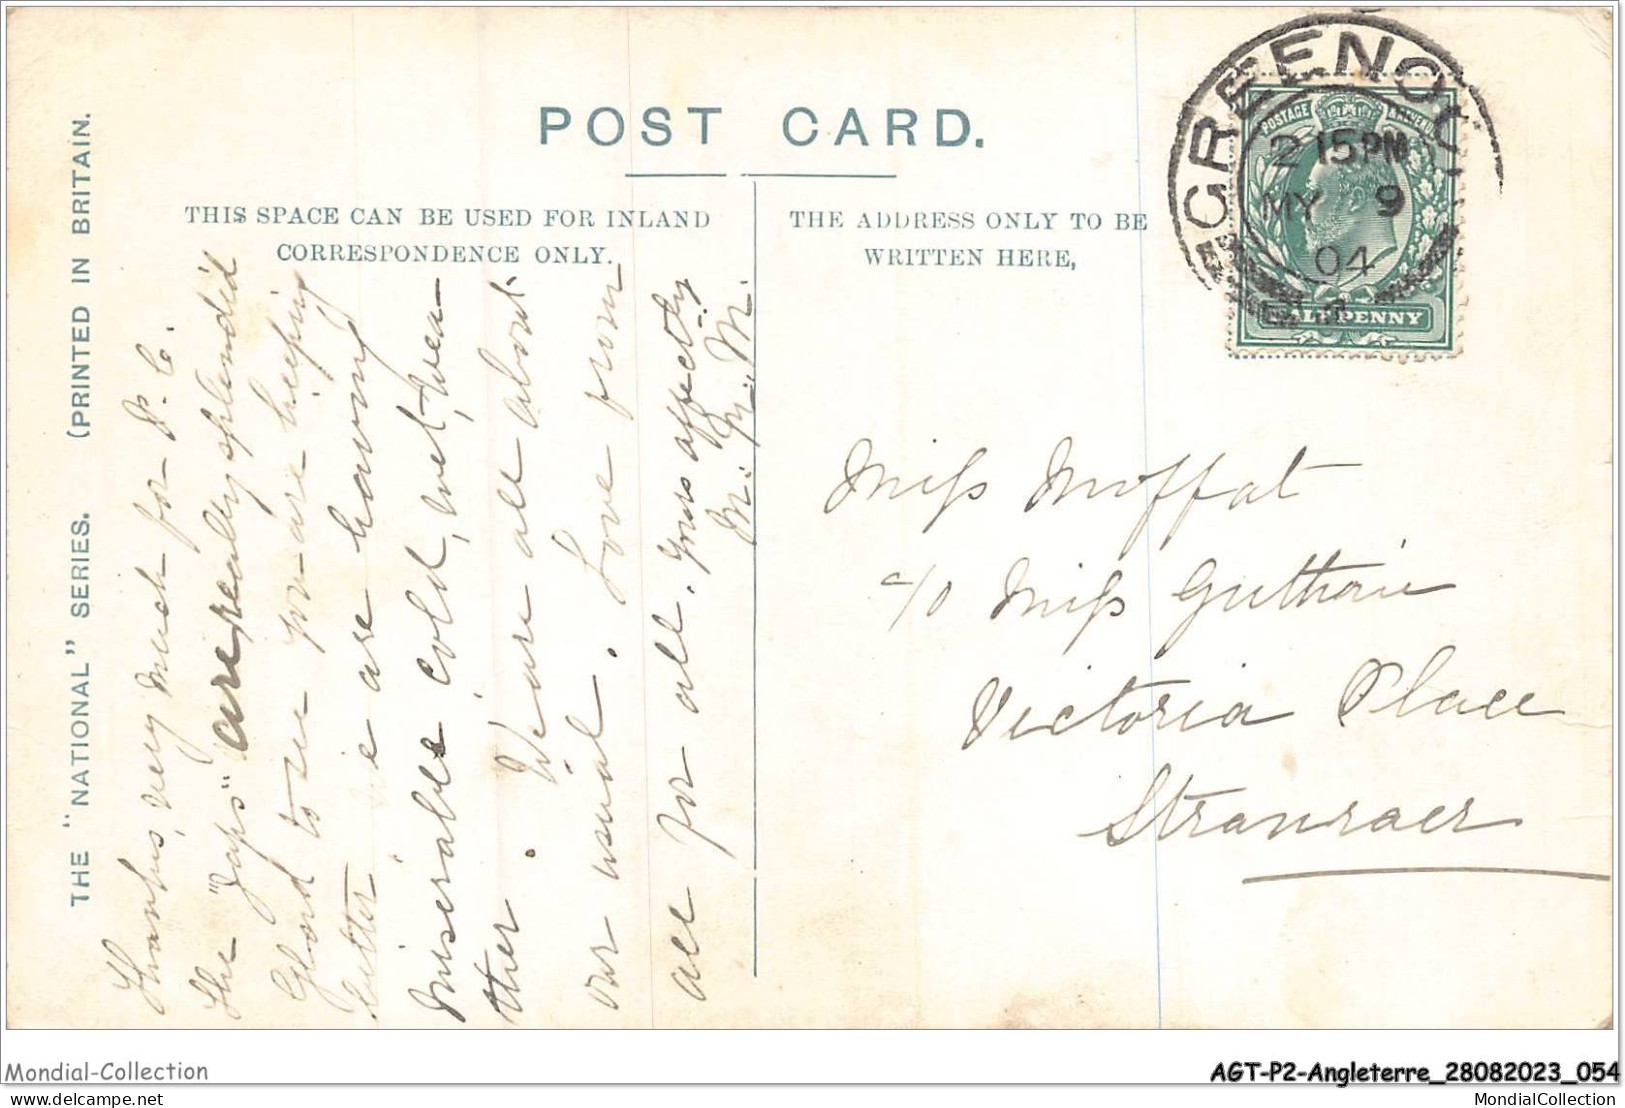 POST CARD.
THE "NATIONAL" SERIES. (PRINTED IN BRITAIN.
THIS SPACE CAN BE USED FOR INLAND
CORRESPONDENCE ONLY.
THE ADDRESS ONLY TO BE
WRITTEN HERE,
GREENOCK
2 15PM
MY 9
04
POSTAGE
HALFPENNY
Thanks very much for P.C.
The "Japs" are really splendid
Glad to see you are keeping
better We are having
miserable cold, wet, wea-
ther. We are all about
our usual. Love from
all for all. Yours affectly
M. M. M.
Miss Moffat
c/o Miss Guthrie
Victoria Place
Stranraer
Mondial-Collection
AGT-P2-Angleterre_28082023_054
delcampe.net
MondialCollection